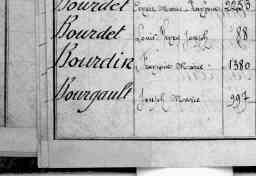 Bourdet Marie 2253
Bourdet Louis Joseph 88
Bourdin François Marie 1380
Bourgault Joseph Marie 997